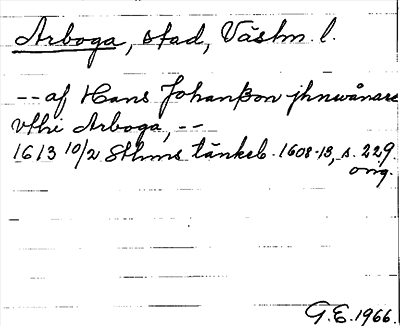 Arboga, stad, Västm. l.
-- af Hans Johanßon jhnwånare
vthi Arboga, --
1613 10/2 Sthms tänkeb. 1608-13, s. 229.
orig.
G.E. 1966.